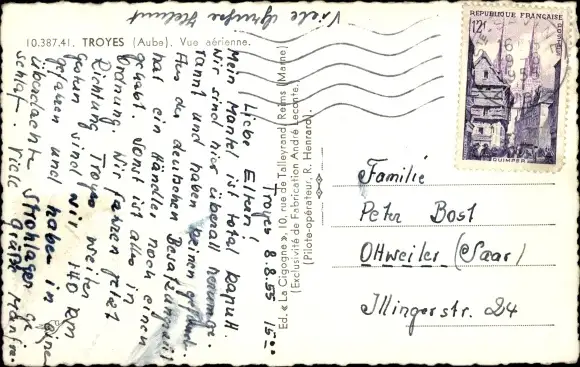 Viele Grüße Helmut
10.387.41. TROYES (Aube). Vue aérienne.
Troyes 8.8.55 15⁰⁰
Liebe Eltern!
Mein Mantel ist total kaputt.
Wir sind hier überall herumge-
rannt und haben keinen gefund.
Aus der deutschen Besatzungszeit
hat ein Händler noch einen
gehabt. Sonst ist alles in
Ordnung. Wir fahren jetzt
Richtung Troyes weiter.
Gestern sind wir 140 km
gefahren und haben in einer
überdacht Strohlager ge
schlaf Viele
Grüße Manfre.
Ed. « La Cigogne », 10, rue de Talleyrand, Reims (Marne)
(Exclusivité de Fabrication André Leconte,
(Pilote-opérateur, R. Henrard).
REPUBLIQUE FRANÇAISE
12F
QUIMPER
Familie
Peter Bost
Ottweiler (Saar)
Illingerstr. 24